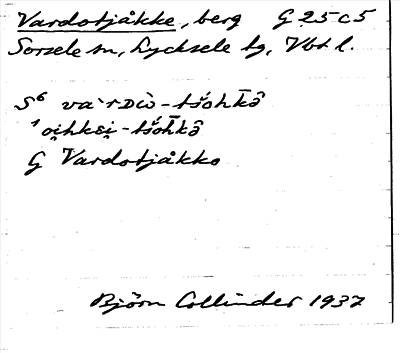 Vardotjåkke, berg G 25 c 5
Sorsele sn, Lycksele tg, Vbt l.
S⁶ va`rDὼ-tšohkå̄
¹oi̯hkɛi̯-tšohkå̄
G Vardotjåkko
Björn Collinder 1937